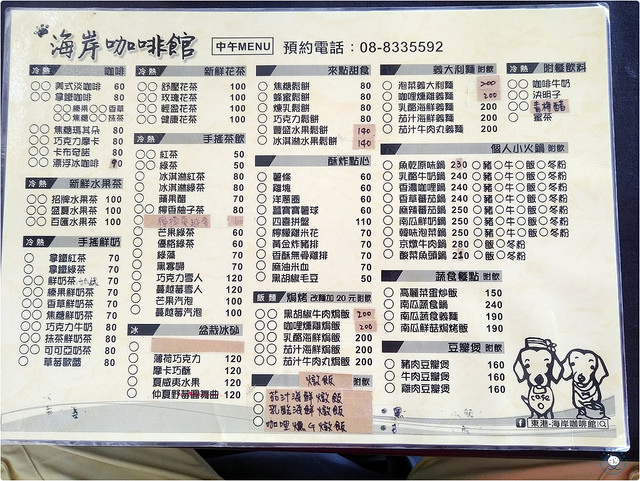 海岸咖啡館 中午MENU 預約電話：08-8335592
冷 熱 咖啡
美式淡咖啡 60
拿鐵咖啡 80
榛果 香草
焦糖 抹茶
焦糖瑪其朵 80
巧克力摩卡 80
卡布奇諾 80
漂浮冰咖啡 90
冷 熱 新鮮水果茶
招牌水果茶 100
盛夏水果茶 100
百匯水果茶 100
冷 熱 手搖鮮奶
拿鐵紅茶 70
拿鐵綠茶 70
鮮奶茶 70
榛果鮮奶茶 70
香草鮮奶茶 70
焦糖鮮奶茶 70
巧克力牛奶 80
抹茶鮮奶茶 80
可可亞奶茶 80
草莓歐蕾 80
冷 熱 新鮮花茶
舒壓花茶 100
玫瑰花茶 100
輕盈花茶 100
健康花茶 100
冷 熱 手搖茶飲
紅茶 50
綠茶 50
冰淇淋紅茶 80
冰淇淋綠茶 80
蘋果醋 70
檸香柚子茶 80
芒果綠茶 50
優酪綠茶 60
綠藻 70
黑寡婦 70
巧克力雪人 120
蔓越莓雪人 120
芒果汽泡 100
蔓越莓汽泡 100
冰 盆栽冰砂
薄荷巧克力 120
摩卡巧酥 120
夏威夷水果 120
仲夏野莓舞曲 120
來點甜食
焦糖鬆餅 80
蜂蜜鬆餅 80
煉乳鬆餅 80
巧克力鬆餅 80
豐盛水果鬆餅 140
冰淇淋水果鬆餅 140
酥炸點心
薯條 60
雞塊 60
洋蔥圈 60
蠶寶寶薯球 60
四喜拼盤 110
檸檬雞米花 70
黃金炸豬排 70
香酥無骨雞排 70
麻油米血 70
黑胡椒毛豆 50
飯 麵 焗烤 改麵加 20 元 附飲
黑胡椒牛肉焗飯 200
咖哩燻雞焗飯 200
乳酪海鮮焗飯 200
茄汁海鮮焗飯 200
茄汁牛肉焗飯 200
燉飯 附飲
茄汁海鮮燉飯
乳酪海鮮燉飯
咖哩燻G燉飯
義大利麵 附飲
泡菜義大利麵 200
咖哩燻雞義麵 200
乳酪海鮮義麵
茄汁海鮮義麵
茄汁牛肉丸義麵
冷 熱 附餐飲料
咖啡牛奶
決明子
青檸醋
蜜茶
個人小火鍋 附飲
魚乾原味鍋 230 豬 牛 飯 冬粉
乳酪牛奶鍋 240 豬 牛 飯 冬粉
香濃咖哩鍋 240 豬 牛 飯 冬粉
香草蕃茄鍋 240 豬 牛 飯 冬粉
麻辣蕃茄鍋 250 豬 牛 飯 冬粉
南瓜鮮奶鍋 250 豬 牛 飯 冬粉
韓味泡菜鍋 250 豬 牛 飯 冬粉
京燉牛肉鍋 280 飯 冬粉
酸菜魚頭鍋 210 飯 冬粉
蔬食餐點 附飲
高麗菜蛋炒飯 150
南瓜蔬食鍋 240
南瓜蔬食義麵 190
南瓜鮮菇焗烤飯 190
豆瓣煲 附飲
豬肉豆瓣煲 160
牛肉豆瓣煲 160
雞肉豆瓣煲 160
cafe
東港-海岸咖啡館